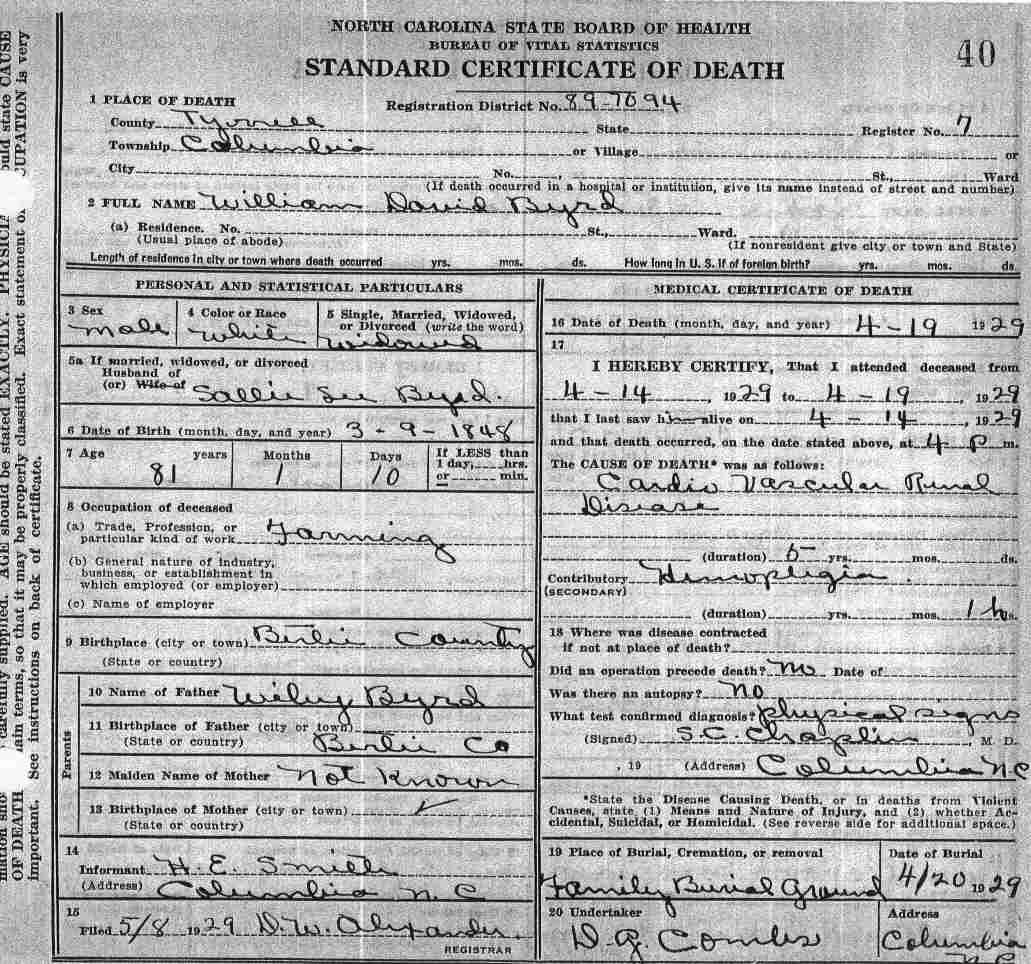 NORTH CAROLINA STATE BOARD OF HEALTH
BUREAU OF VITAL STATISTICS
STANDARD CERTIFICATE OF DEATH
40
1 PLACE OF DEATH
Registration District No. 89-7094
County Tyrrell State Register No. 7
Township Columbia or Village or
City No. , St., Ward
(If death occurred in a hospital or institution, give its name instead of street and number)
2 FULL NAME William David Byrd
(a) Residence. No. St., Ward.
(Usual place of abode) (If nonresident give city or town and State)
Length of residence in city or town where death occurred yrs. mos. ds. How long in U. S. if of foreign birth? yrs. mos. ds.
PERSONAL AND STATISTICAL PARTICULARS
3 Sex
male
4 Color or Race
White
5 Single, Married, Widowed,
or Divorced (write the word)
Widowed
5a If married, widowed, or divorced
Husband of
(or) Wife of Sallie Byrd.
6 Date of Birth (month, day, and year) 3-9-1848
7 Age 81 years
Months 1
Days 10
If LESS than
1 day, hrs.
or min.
8 Occupation of deceased
(a) Trade, Profession, or
particular kind of work Farming
(b) General nature of industry,
business, or establishment in
which employed (or employer)
(c) Name of employer
9 Birthplace (city or town) Bertie County
(State or country)
Parents
10 Name of Father Wiley Byrd
11 Birthplace of Father (city or town)
(State or country) Bertie Co
12 Maiden Name of Mother Not Known
13 Birthplace of Mother (city or town) ✓
(State or country)
14
Informant H. E. Smith
(Address) Columbia N. C
15
Filed 5/8 1929 D. W. Alexander.
REGISTRAR
MEDICAL CERTIFICATE OF DEATH
16 Date of Death (month, day, and year) 4-19 1929
17
I HEREBY CERTIFY, That I attended deceased from
4-14, 1929 to 4-19, 1929
that I last saw him alive on 4-14, 1929
and that death occurred, on the date stated above, at 4 P m.
The CAUSE OF DEATH* was as follows:
Cardio Vascular Renal
Disease
(duration) 5 yrs. mos. ds.
Contributory Hemiplegia
(SECONDARY)
(duration) yrs. mos. 1 ds.
18 Where was disease contracted
if not at place of death?
Did an operation precede death? No Date of
Was there an autopsy? No
What test confirmed diagnosis? physical signs
(Signed) S. C. Chaplin, M. D.
, 19 (Address) Columbia N.C
*State the Disease Causing Death, or in deaths from Violent
Causes, state (1) Means and Nature of Injury, and (2) whether Ac-
cidental, Suicidal, or Homicidal. (See reverse side for additional space.)
19 Place of Burial, Cremation, or removal
Family Burial Ground
Date of Burial
4/20 1929
20 Undertaker
Combs
Address
Columbia
N C
AGE should be stated EXACTLY.
ain terms, so that it may be properly classified. Exact statement of
OF DEATH
important. See instructions on back of certificate.
ould state CAUSE
CUPATION is very